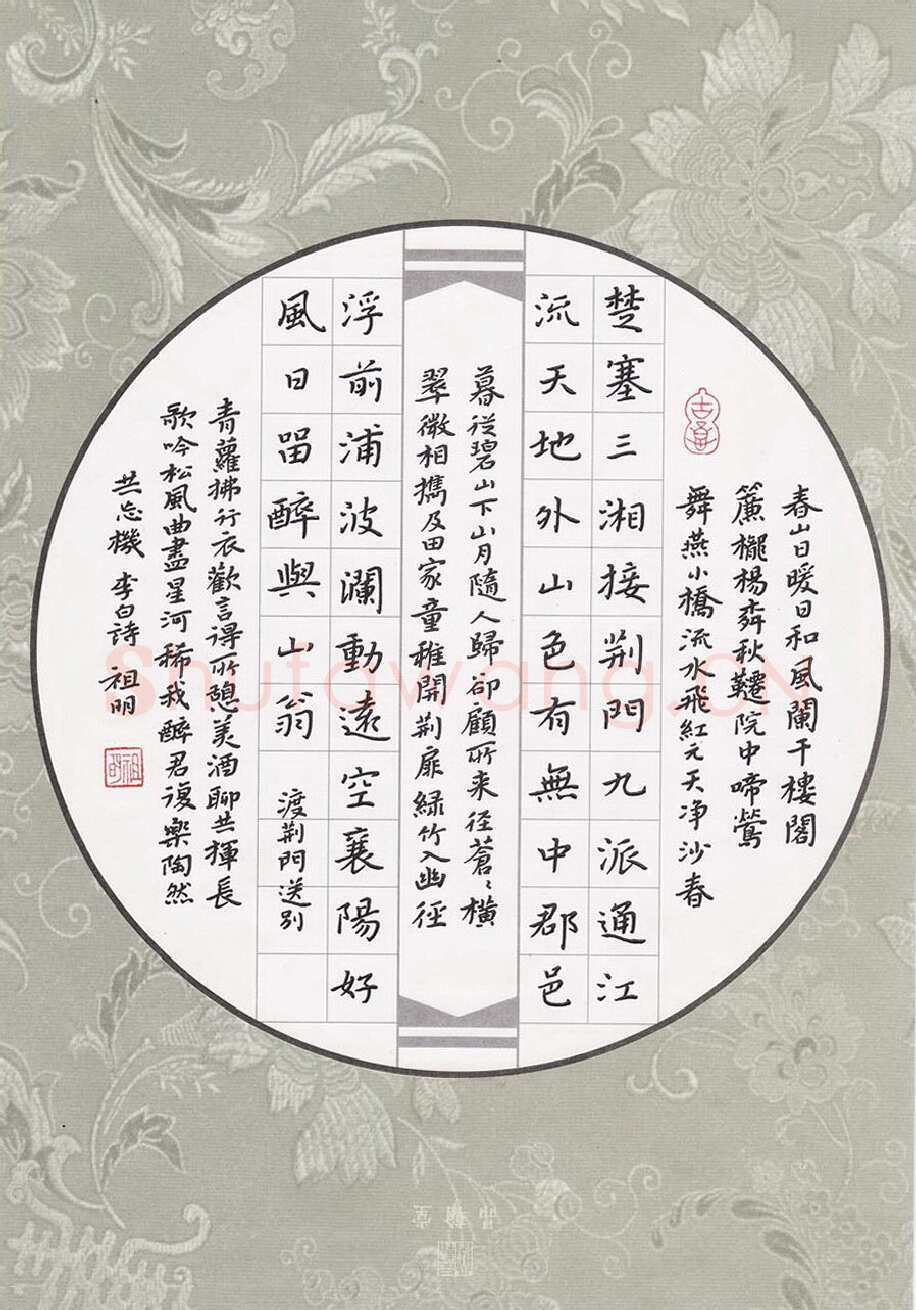 春山日暖日和風闌干樓閣
簾櫳楊柳秋韆院中啼鶯
舞燕小橋流水飛紅元天净沙春
楚塞三湘接荆門九派通江
流天地外山色有無中郡邑
暮從碧山下山月隨人歸卻顧所来徑蒼〻橫
翠微相攜及田家童稚開荆扉緑竹入幽徑
浮前浦波瀾動遠空襄陽好
風日留醉與山翁 渡荆門送别
青蘿拂行衣歡言得所憩美酒聊共揮長
歌吟松風曲盡星河稀我醉君復樂陶然
共忘機 李白詩 祖明
祖明
Shufawang.CN
品翰堂